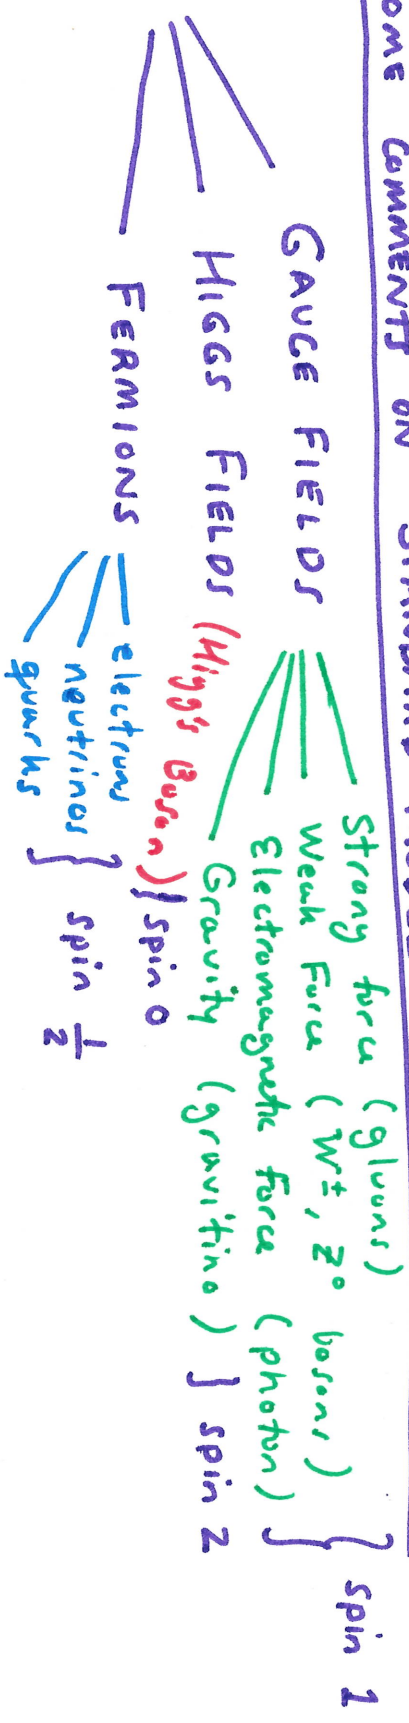 COMMENTS ON
GAUGE FIELDS
Strong force (gluons)
Weak Force (W±, Z⁰ bosons)
Electromagnetic force (photon)
} spin 1
Gravity (gravitino) } spin 2
HIGGS FIELDS (Higg's Boson) } spin 0
FERMIONS
electrons
neutrinos
quarks
} spin 1/2